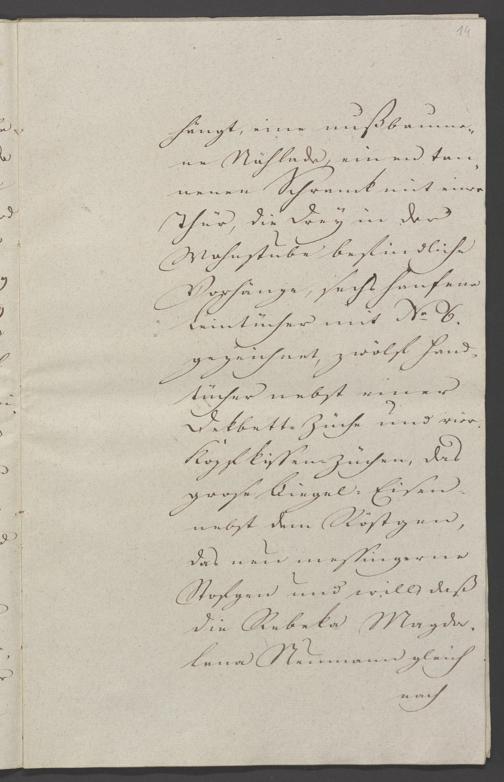 14
hängt, eine nußbaume-
ne Nählade, einen tan-
nenen Schrank mit einer
Thür, die drey in der
Wohnstube befindliche
Vorhänge, sechs hänfene
Leintücher mit No 6.
gezeichnet, zwölf Hand-
tücher nebst einer
Dekbette Züche und vier
Kopfkissen Züchen, das
grose Biegel-Eisen
nebst dem Röstgen,
das neu messingerne
und will, daß
die Rebeka Magda-
lena Neumann gleich
nach